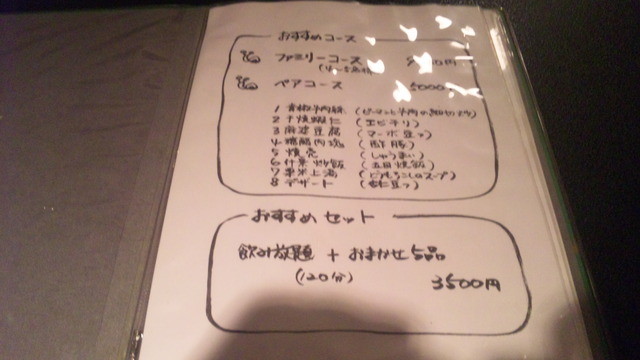 おすすめコース
ファミリーコース 円
(4〜5名様)
ペアコース 5000円
1 青椒牛肉絲 (ピーマンと牛肉の細切り)
2 干焼蝦仁 (エビチリ)
3 麻婆豆腐 (マーボ豆フ)
4 糖醋肉塊 (酢豚)
5 焼売 (しゅうまい)
6 什景炒飯 (五目焼飯)
7 粟米上湯 (とうもろこしのスープ)
8 デザート (杏豆フ)
おすすめセット
飲み放題 + おまかせ5品
(120分) 3500円